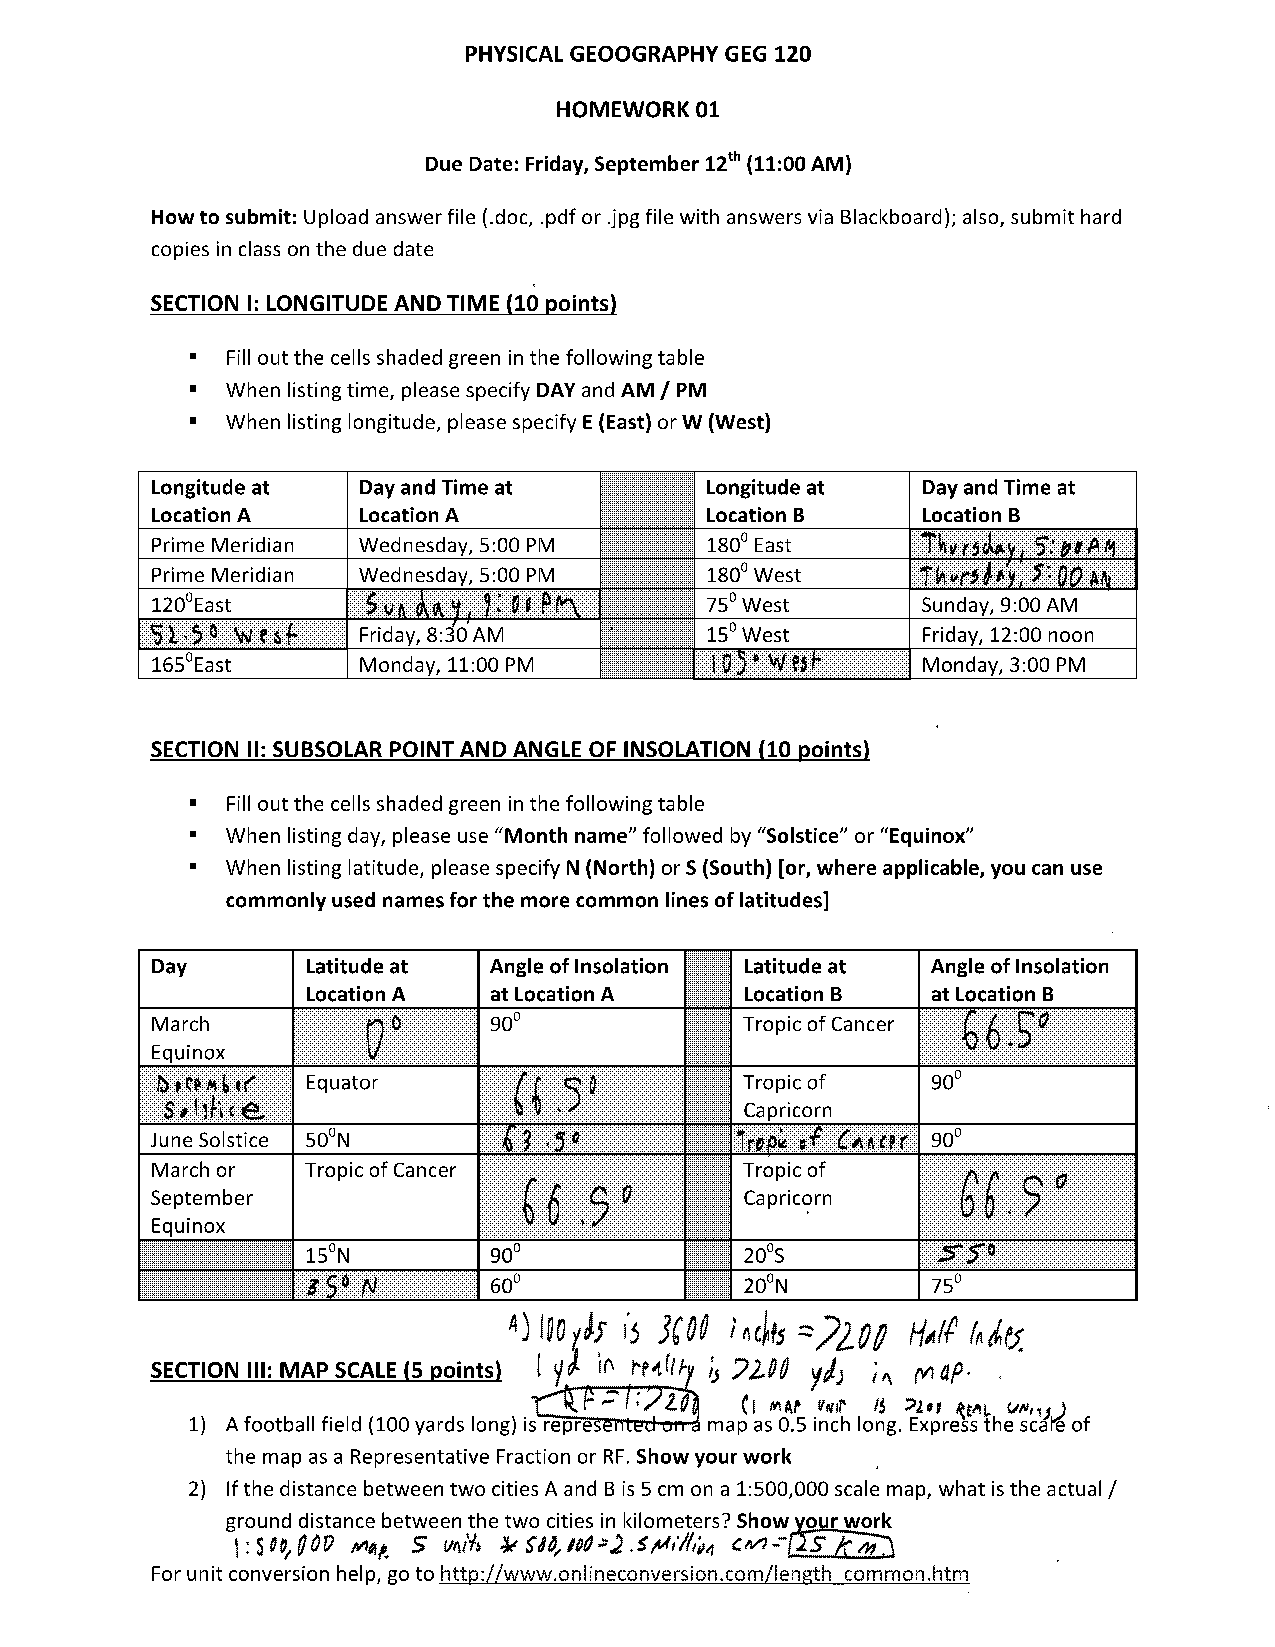 PHYSICAL GEOOGRAPHY GEG 120
HOMEWORK 01
Due Date: Friday, September 12th (11:00 AM)
How to submit: Upload answer file (.doc, .pdf or .jpg file with answers via Blackboard); also, submit hard
copies in class on the due date
SECTION I: LONGITUDE AND TIME (10 points)
▪ Fill out the cells shaded green in the following table
▪ When listing time, please specify DAY and AM / PM
▪ When listing longitude, please specify E (East) or W (West)
Longitude at Location A | Day and Time at Location A | Longitude at Location B | Day and Time at Location B
Prime Meridian | Wednesday, 5:00 PM | 180⁰ East | Thursday, 5:00AM
Prime Meridian | Wednesday, 5:00 PM | 180⁰ West | Thursday, 5:00 AM
120⁰East | Sunday, 9:00PM | 75⁰ West | Sunday, 9:00 AM
52.5⁰ West | Friday, 8:30 AM | 15⁰ West | Friday, 12:00 noon
165⁰East | Monday, 11:00 PM | 105° West | Monday, 3:00 PM
SECTION II: SUBSOLAR POINT AND ANGLE OF INSOLATION (10 points)
▪ Fill out the cells shaded green in the following table
▪ When listing day, please use “Month name” followed by “Solstice” or “Equinox”
▪ When listing latitude, please specify N (North) or S (South) [or, where applicable, you can use
commonly used names for the more common lines of latitudes]
Day | Latitude at Location A | Angle of Insolation at Location A | Latitude at Location B | Angle of Insolation at Location B
March Equinox | 0⁰ | 90⁰ | Tropic of Cancer | 66.5⁰
December Solstice | Equator | 66.5⁰ | Tropic of Capricorn | 90⁰
June Solstice | 50⁰N | 63.5⁰ | Tropic of Cancer | 90⁰
March or September Equinox | Tropic of Cancer | 66.5⁰ | Tropic of Capricorn | 66.5⁰
15⁰N | 90⁰ | 20⁰S | 55⁰
35⁰ N | 60⁰ | 20⁰N | 75⁰
A) 100 yds is 3600 inches = 7200 Half Inches.
SECTION III: MAP SCALE (5 points)
1 yd in reality is 7200 yds in map.
RF = 1:7200 (1 MAP UNIT IS 7200 REAL UNITS)
1) A football field (100 yards long) is represented on a map as 0.5 inch long. Express the scale of
the map as a Representative Fraction or RF. Show your work
2) If the distance between two cities A and B is 5 cm on a 1:500,000 scale map, what is the actual /
ground distance between the two cities in kilometers? Show your work
1:500,000 map 5 units * 500,000 = 2.5 Million cm = 25 Km.
For unit conversion help, go to http://www.onlineconversion.com/length_common.htm